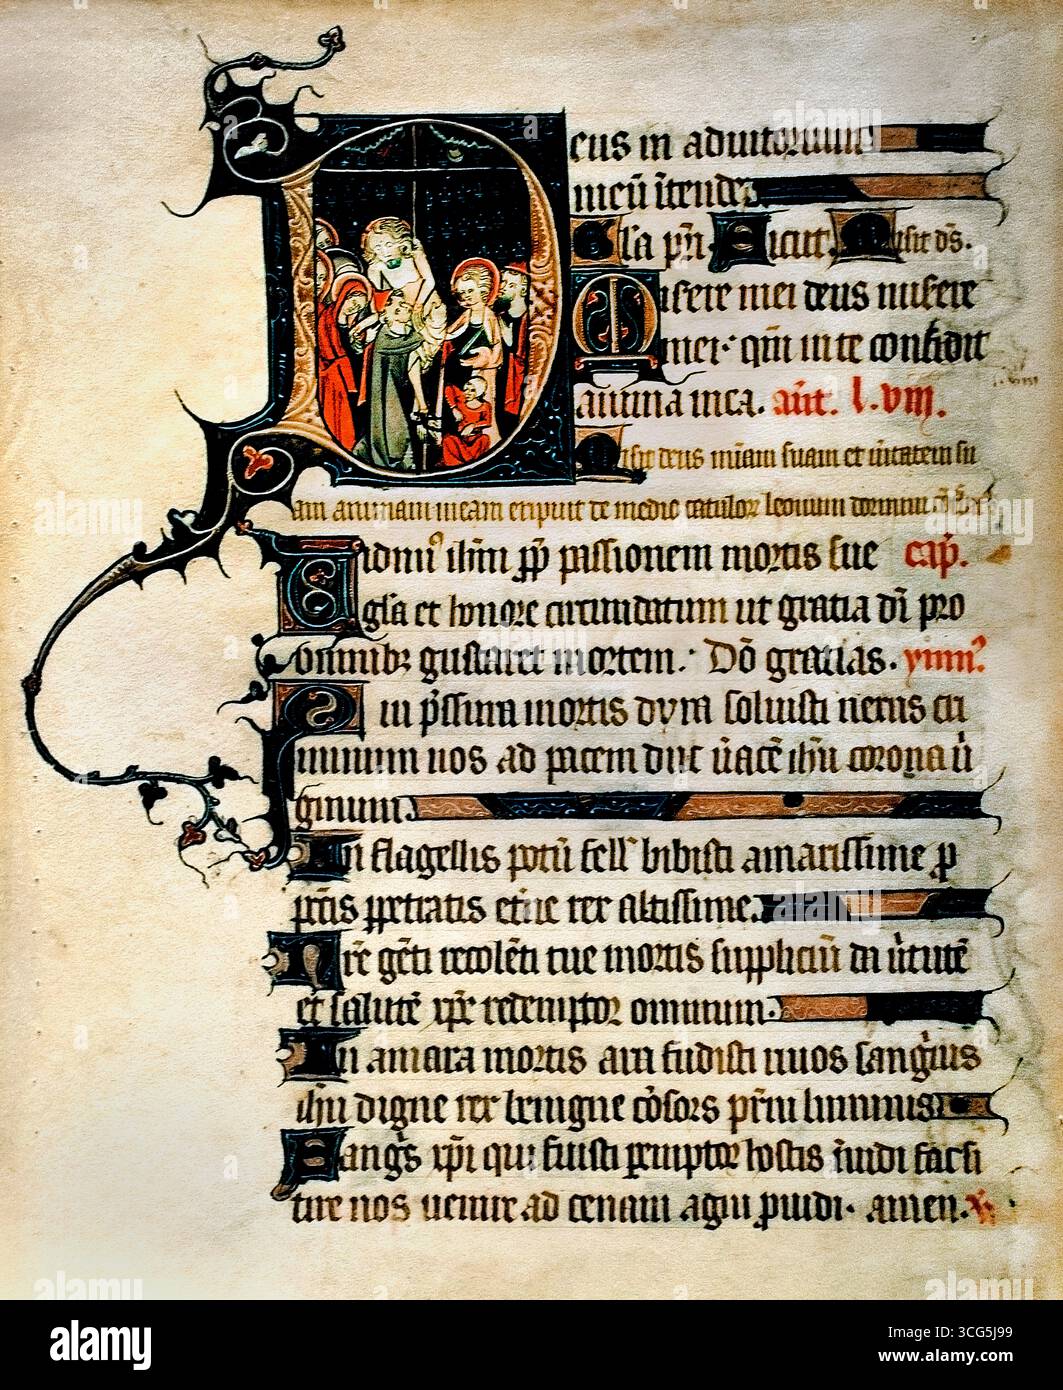 Deus in adiutorium
meū ītende
Gl'a pr̄i. Sicut. Misit dš.
Misere mei deus misere
mei. qm̄ in te confidit
anima mea. añt. l.viij.
Misit deus mīam suam et ūitatem su
am animam meam eripuit de medio catulor leonum dormiui
Uidimꝰ ihm̄ ꝓp passionem mortis sue cap̄.
gl̄a et honore circundatum ut gratia dī pro
omnibꝫ gustaret mortem. Dō gratias. ymnꝰ.
Qui p̄ssura mortis dura soluisti nexus cri
minum nos ad pacem duc uāce ihū corona ūi
ginum.
In flagellis potū fellꝰ bibisti amarissime ꝓ
p̄ctis ꝑpetratis et̄ne rex altissime.
Nr̄e gēti recolēti tue mortis suppliciū da ūtutē
et salutē xp̄e redemptor omnium.
In amara mortis ara fudisti riuos sangīs
ihū digne rex benigne cōsors pr̄ni luminis
Sangꝰs xp̄i qui fuisti ꝑemptor hostis īuidi fac si
tire nos uenire ad cenam agni ꝓuidi. amen.
alamy
Image ID: 3CG5J99
www.alamy.com